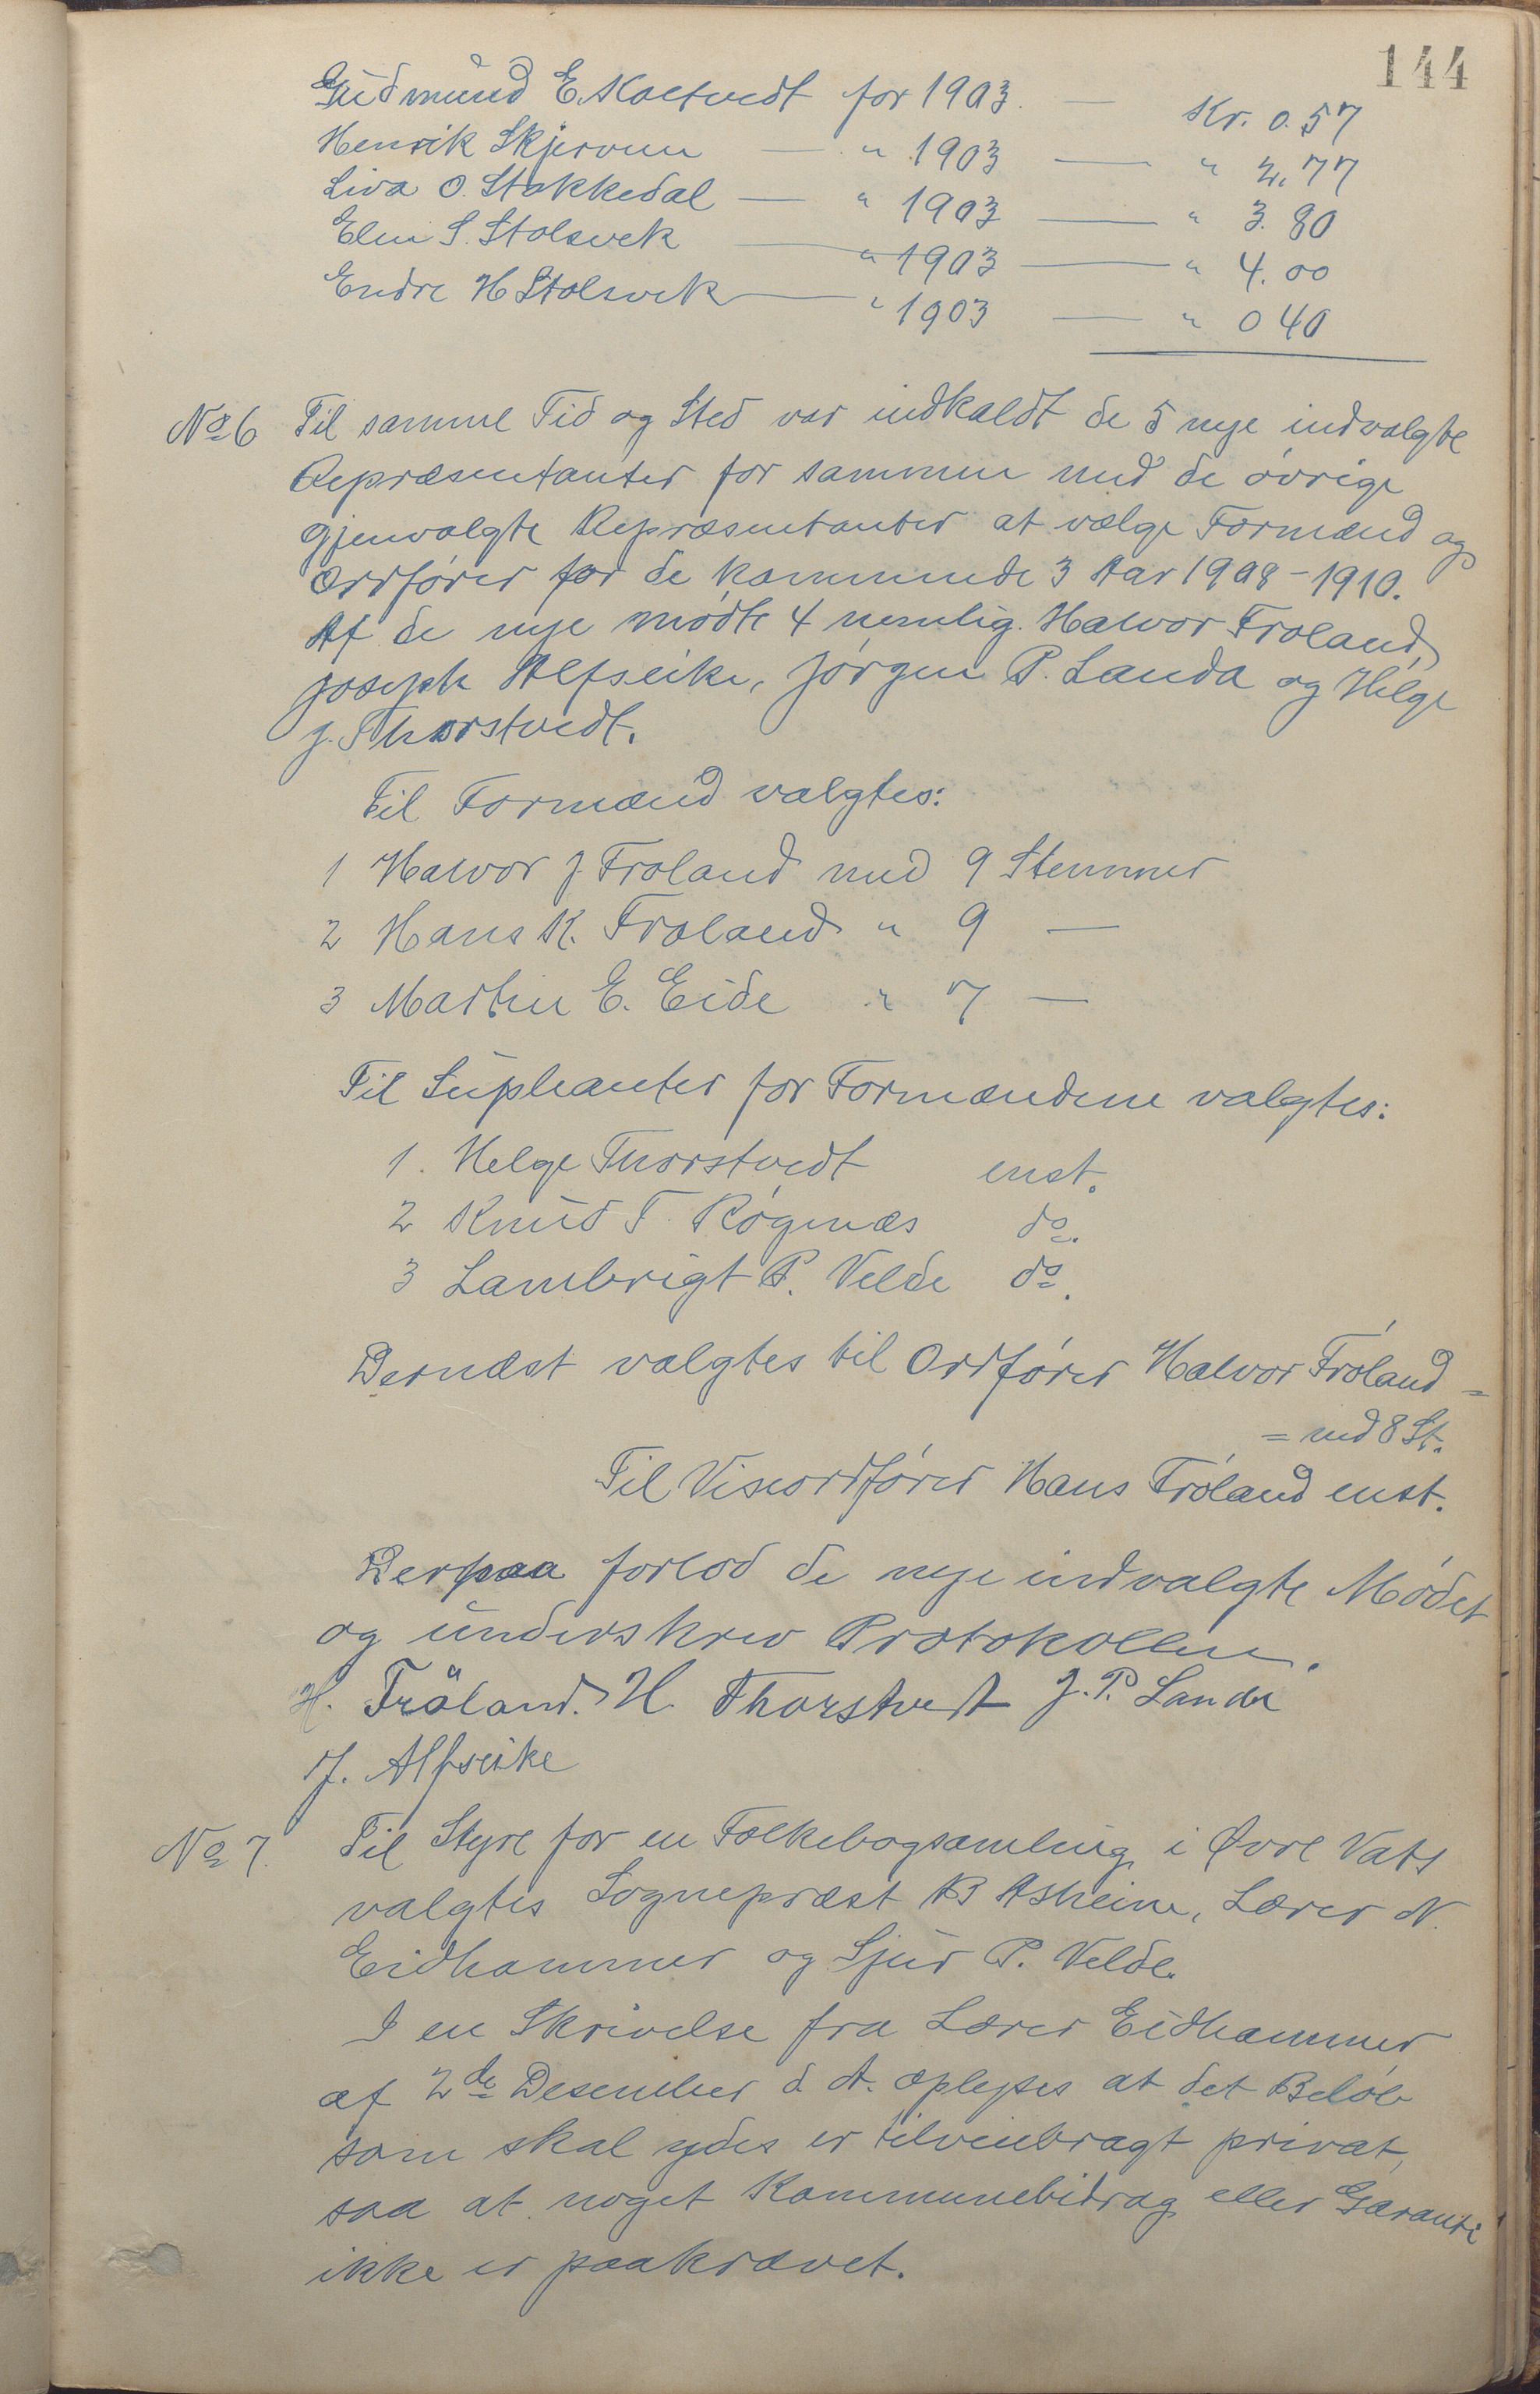 144
Gudmund E. Koltvedt for 1903. — Kr. 0.57
Henrik Skjervum — " 1903 — " 2.77
Liva O. Stakkedal — " 1903 — " 3.80
Elen S. Stolsvek — " 1903 — " 4.00
Endre H Stolsvek — " 1903 — " 0 40
No 6 Til samme Tid og Sted var indkaldt de 5 nye indvalgte
Repræsentanter for sammen med de øvrige
gjenvalgte Repræsentanter at vælge Formænd og
Ordfører for de kommende 3 Aar 1908-1910.
Af de nye mødte 4 nemlig. Halvor Frøland,
Joseph Alfseike, Jørgen P. Landa og Helge
J. Thorstvedt.
Til Formænd valgtes:
1 Halvor J. Frøland med 9 Stemmer
2 Hans K. Frøland " 9 —
3 Martin E. Eide " 7 —
Til Supleanter for Formændene valgtes:
1. Helge Thorstvedt enst.
2 Knud T. Røgenæs do.
3 Lambrigt P. Velde do.
Dernæst valgtes til Ordfører Halvor Frøland =
= med 8 St.
Til Viseordfører Hans Frøland enst.
Derpaa forlod de nye indvalgte Mødet
og underskrev Protokollen.
H. Frøland. H. Thorstvedt J. P. Landa
J. Alfseike
No 7. Til Styre for en Folkebogsamling i Øvre Vats
valgtes Sogneprest B Asheim, Lærer N.
Eidhammer og Sjur P. Velde.
I en Skrivelse fra Lærer Eidhammer
af 2de Desember d. A. oplyses at det Beløb
som skal ydes er tilveiebragt privat,
saa at noget Kommunebidrag eller Garanti
ikke er paakrævet.